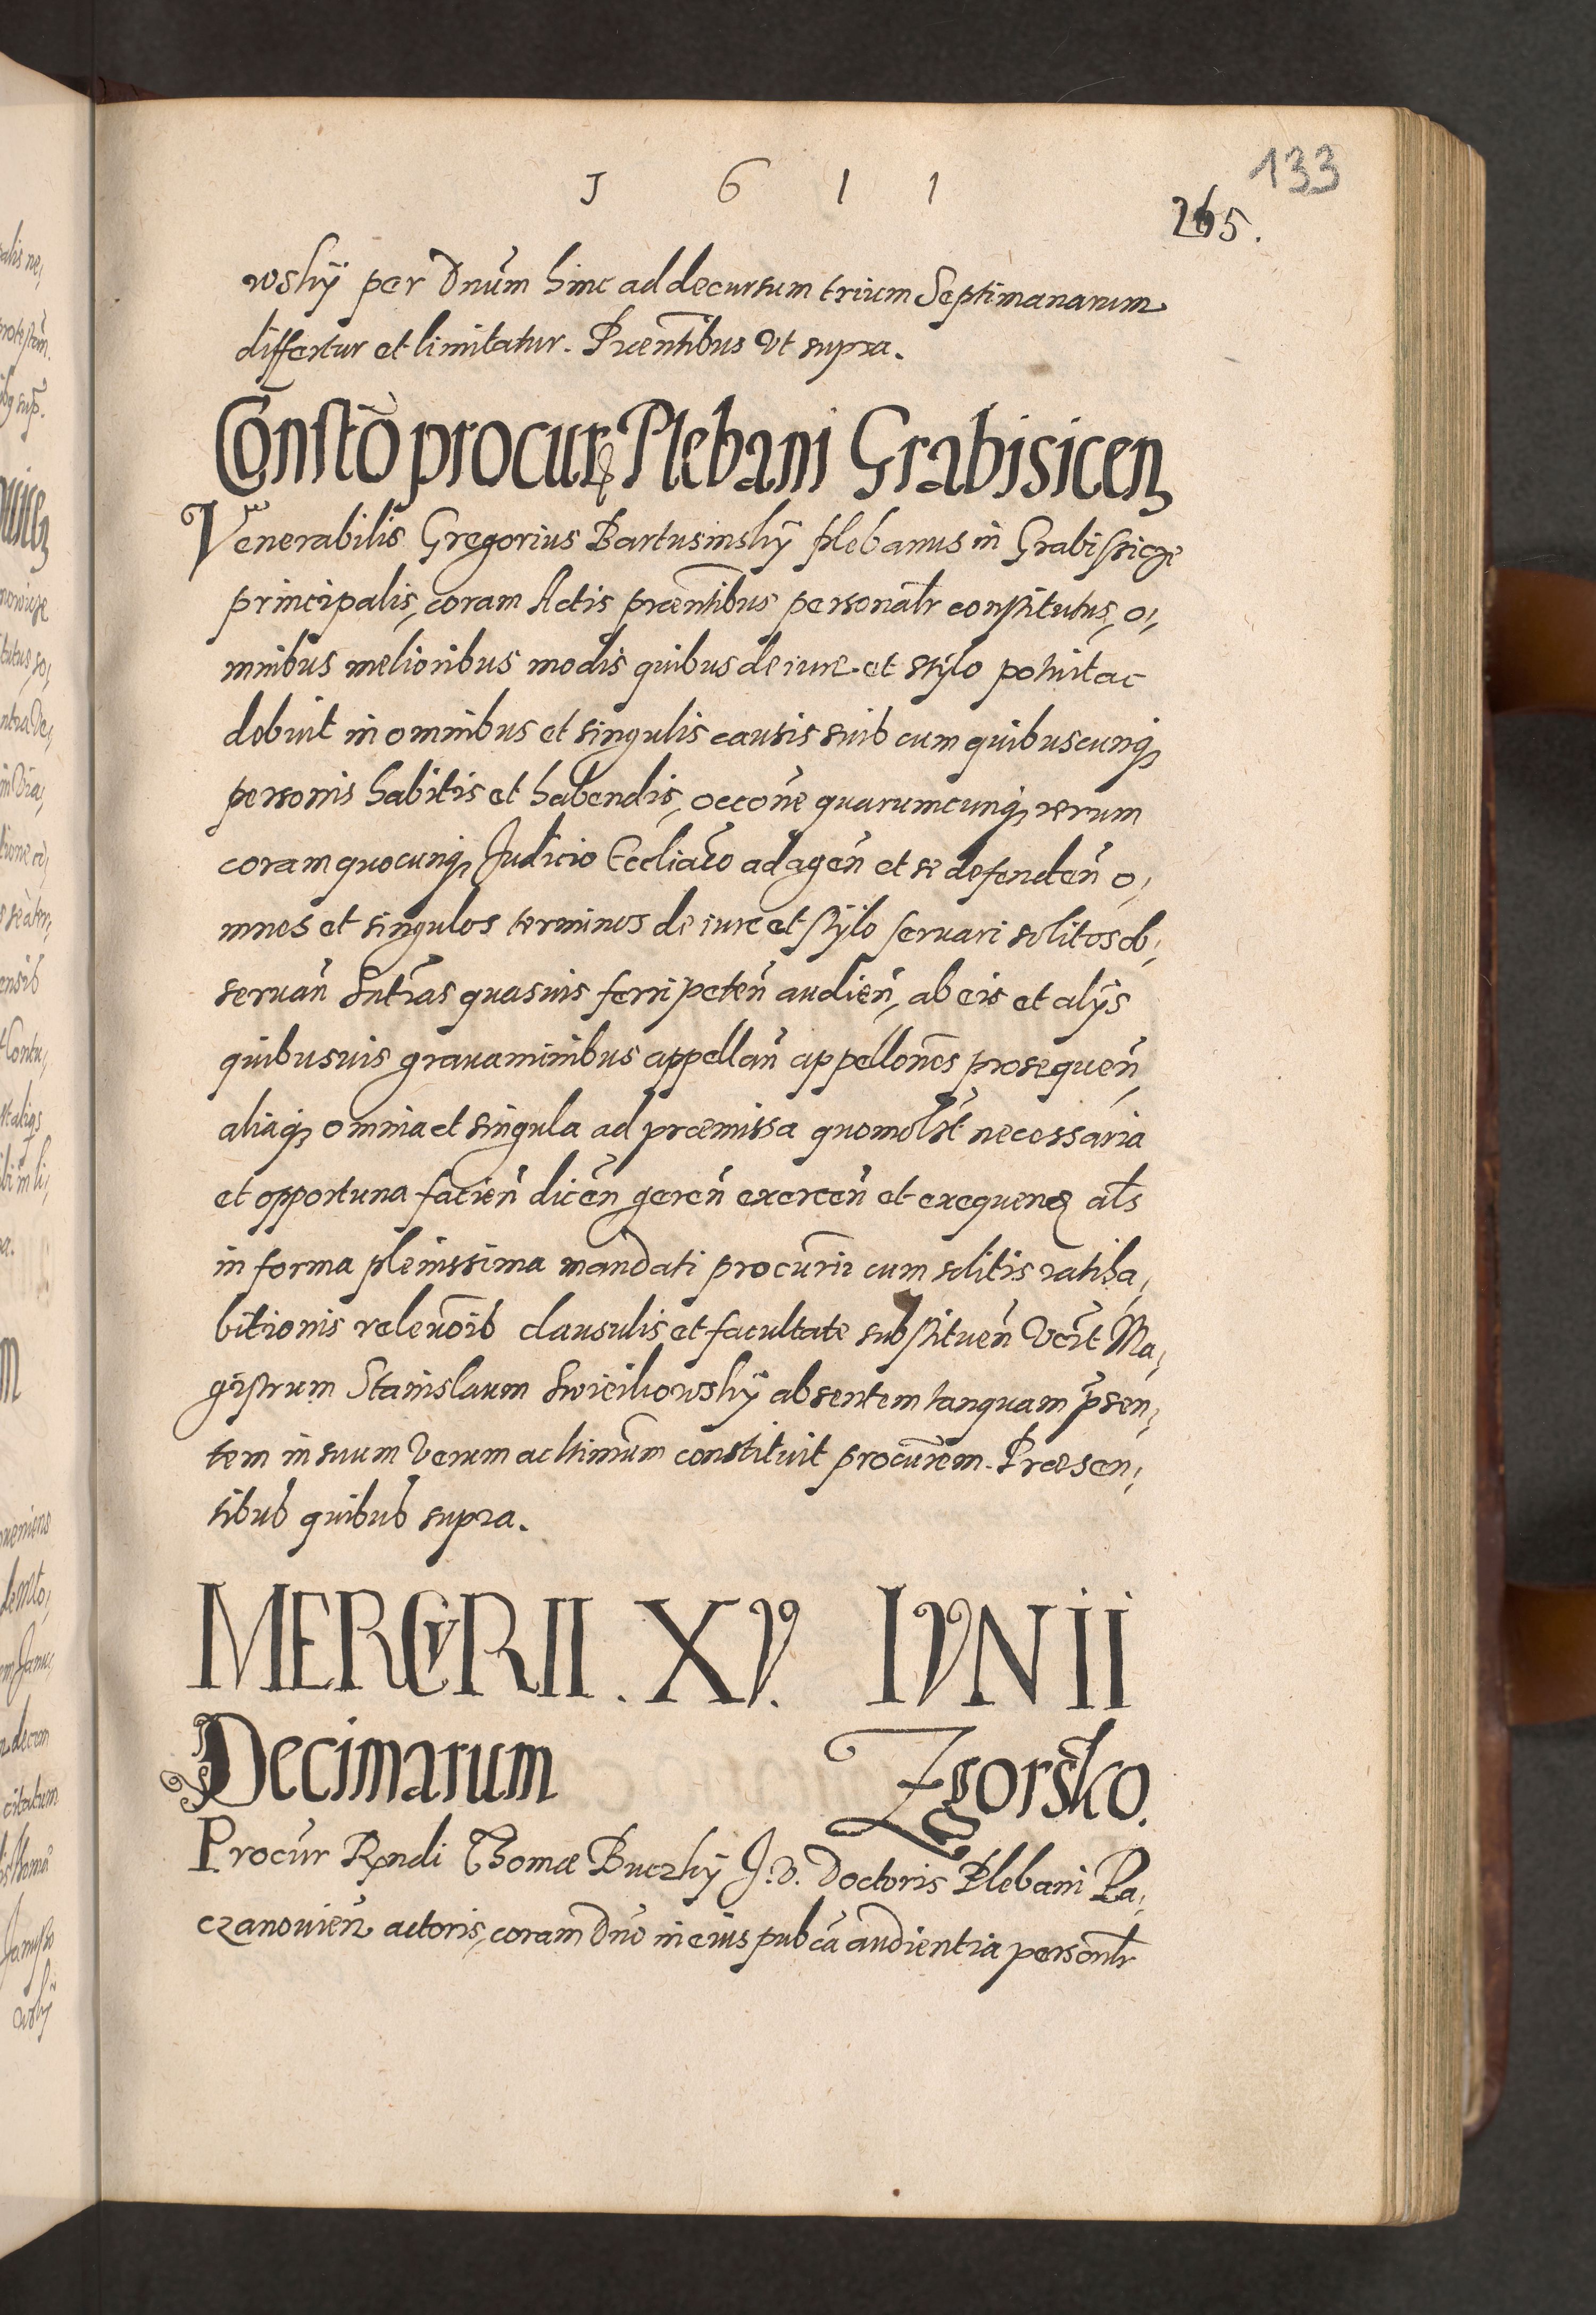 133
1 6 1 1
265.
wskÿ per Dnūm hinc ad decursum trium Septimanarum
differtur et limitatur. Präentibus Vt supra.
Constō procur Plebani Grabisicen
Venerabilis Gregorius Bartusinskÿ plebanus in Grabisicze
principalis, coram Actis präentibus personalr constitutus, o,
mnibus melioribus modis quibus de iure et stÿlo potuit ac
debuit in omnibus et singulis causis suis cum quibuscunq
personis habitis et habendis, occone quarumcunq rerum
coram quocunq Judicio Eccliaco ad agen et se defenden o,
mnes et singulos terminos de iure et stÿlo seruari solitos ob,
seruan Sntias quasuis ferri peten audien, ab eis et alÿs
quibusuis grauaminibus appellan appellones prosequen,
aliaq omnia et singula ad præmissa quomolibt necessaria
et opportuna facien dicen geren exercen et exequen als
in forma plenissima mandati procurii cum solitis ratiha,
bitionis releuoib clausulis et facultate substituen Vert Ma,
gistrum Stanislaum Swiecikowskÿ absentem tanquam psen,
tem in suum Verum ac ltimum constituit procurem. Præsen,
tibus quibus supra.
MERCVRII. XV. IVNII
Decimarum Zgorsko.
Procur Rndi Thomæ Buczkÿ J.V. Doctoris Plebani Pa,
czanouien actoris, coram Dno in eius pubca audientia personlr